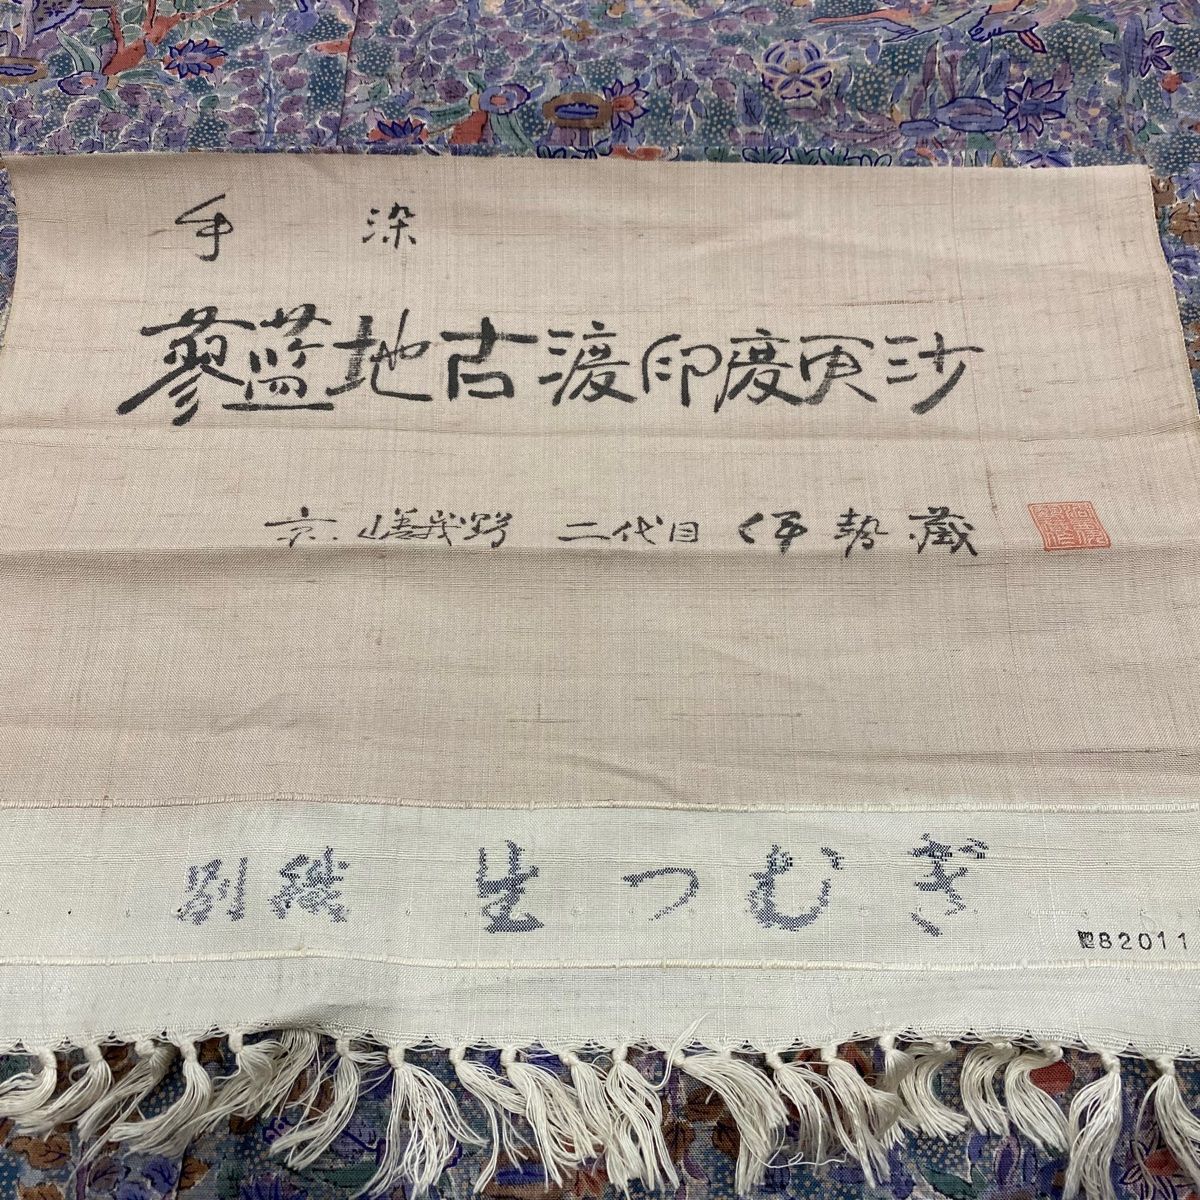 手 染
蓼藍地古渡印度更沙
京 嵯峨野 二代目 伊勢蔵
別織 生つむぎ
82011